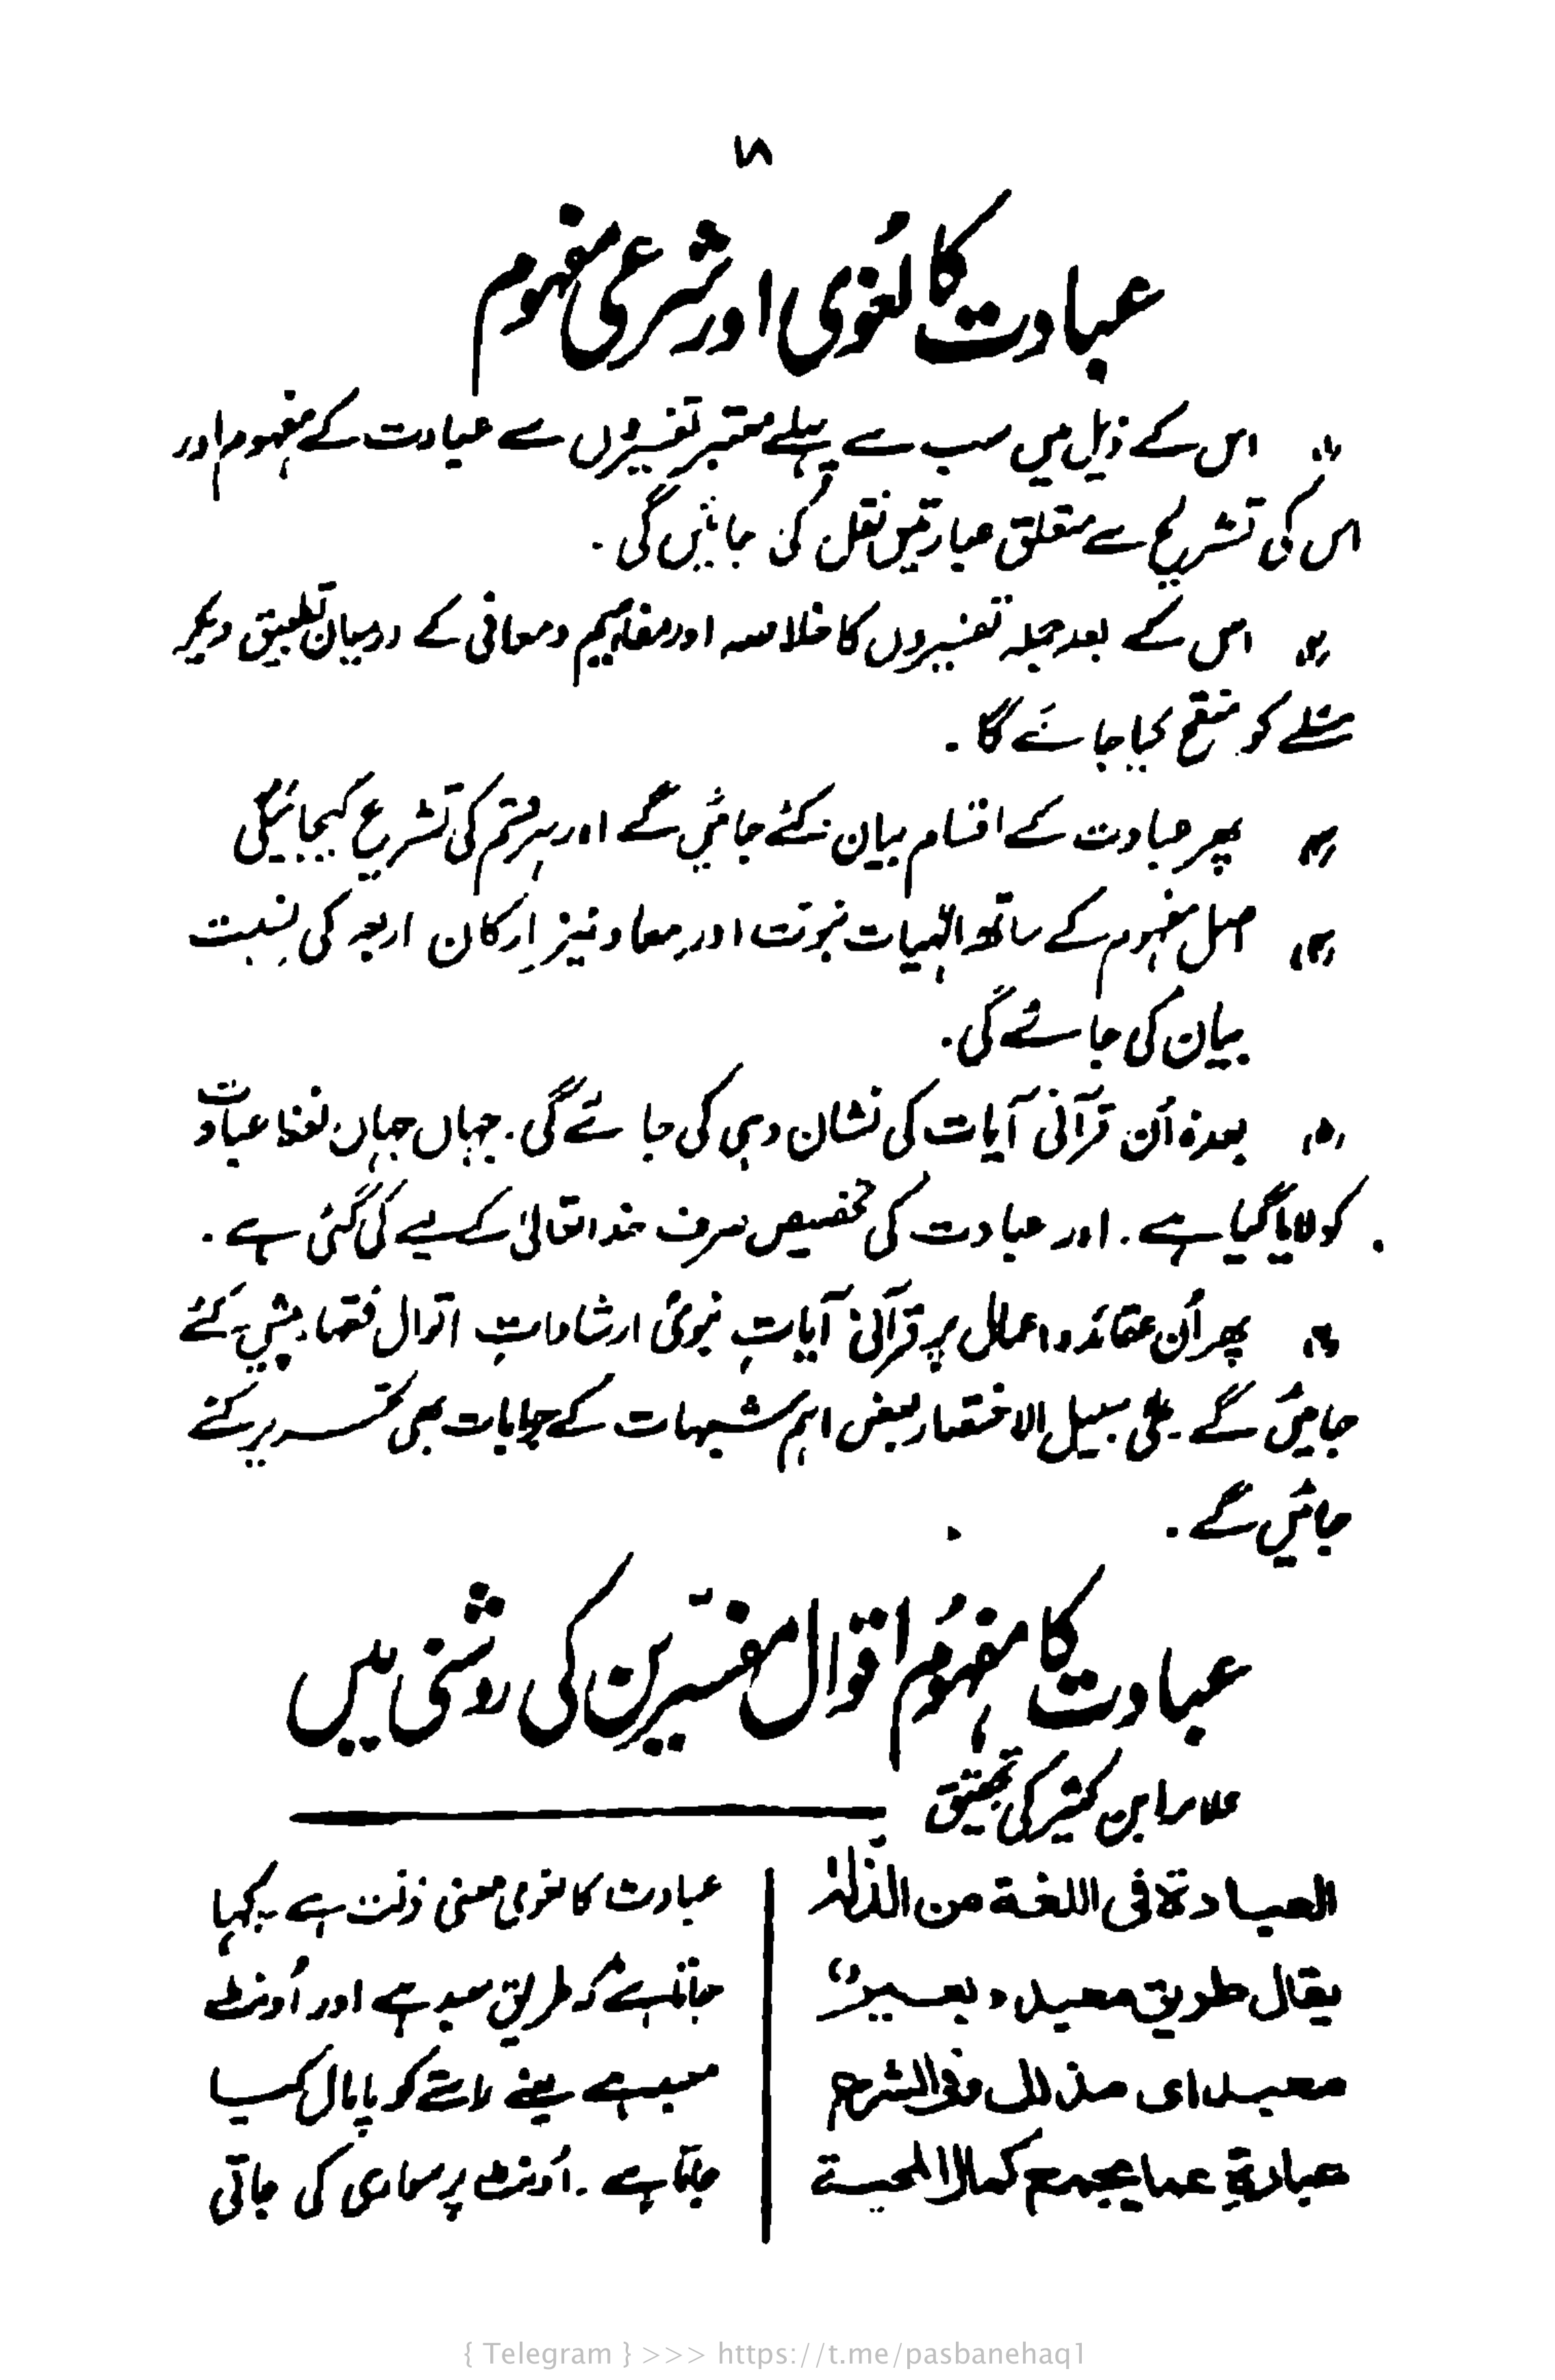 ۷۸
عبادت کا لغوی اور شرعی مفہوم
(۱) اس کے ذیل میں سب سے پہلے معتبر تفسیروں سے عبادت کے مفہوم اور
اس کی تشریح سے متعلق عبارتیں نقل کی جائیں گی۔
(۲) اس کے بعد جملہ تفسیروں کا خلاصہ اور مفاہیم و معانی کے درمیان تطبیق دیکر
مسئلے کو منقح کیا جائے گا۔
(۳) پھر عبادت کے اقسام بیان کئے جائیں گے اور ہر قسم کی تشریح کیجائیگی
(۴) اصل مفہوم کے ساتھ الٰہیات نبوت اور معاد نیز ارکان اربعہ کی نسبت
بیان کی جائے گی۔
(۵) بعدہٗ اُن قرآنی آیات کی نشان دہی کی جائے گی۔ جہاں جہاں لفظ عبادت
کو لایا گیا ہے۔ اور عبادت کی تخصیص صرف خدا تعالیٰ کے لیے کی گئی ہے۔
(۶) پھر اُن عقائد و اعمال پر قرآنی آیاتِ نبویؐ ارشاداتِ اقوال فقہاء پیش کئے
جائیں گے علی سبیل الاختصار بعض اہم شبہات کے جوابات بھی تحریر کئے
جائیں گے۔
عبادت کا مفہوم اقوال مفسّرین کی روشنی میں
علامہ ابن کثیر کی تحقیق
العبادة فی اللغة من الذلة
یقال طریق معبد و بعیر
معبد ای مذلل وفی الشرع
عبادة عما یجمع کمال المحبة
عبادت کا لغوی معنی ذلت ہے۔ کہا
جاتا ہے کہ طریق معبد ہے اور اُونٹ
معبد ہے یعنے راستے کو پامال کیا
جاتا ہے۔ اُونٹ پر سواری کی جاتی
{ Telegram } >>> https://t.me/pasbanehaq1